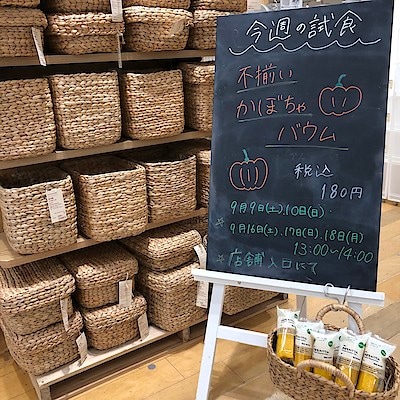 今週の試食
不揃い
かぼちゃ
バウム
税込
180円
☆9月9日(土).10日(日)
9月16日(土).17日(日).18日(月)
13:00〜14:00
☆店舗入口にて